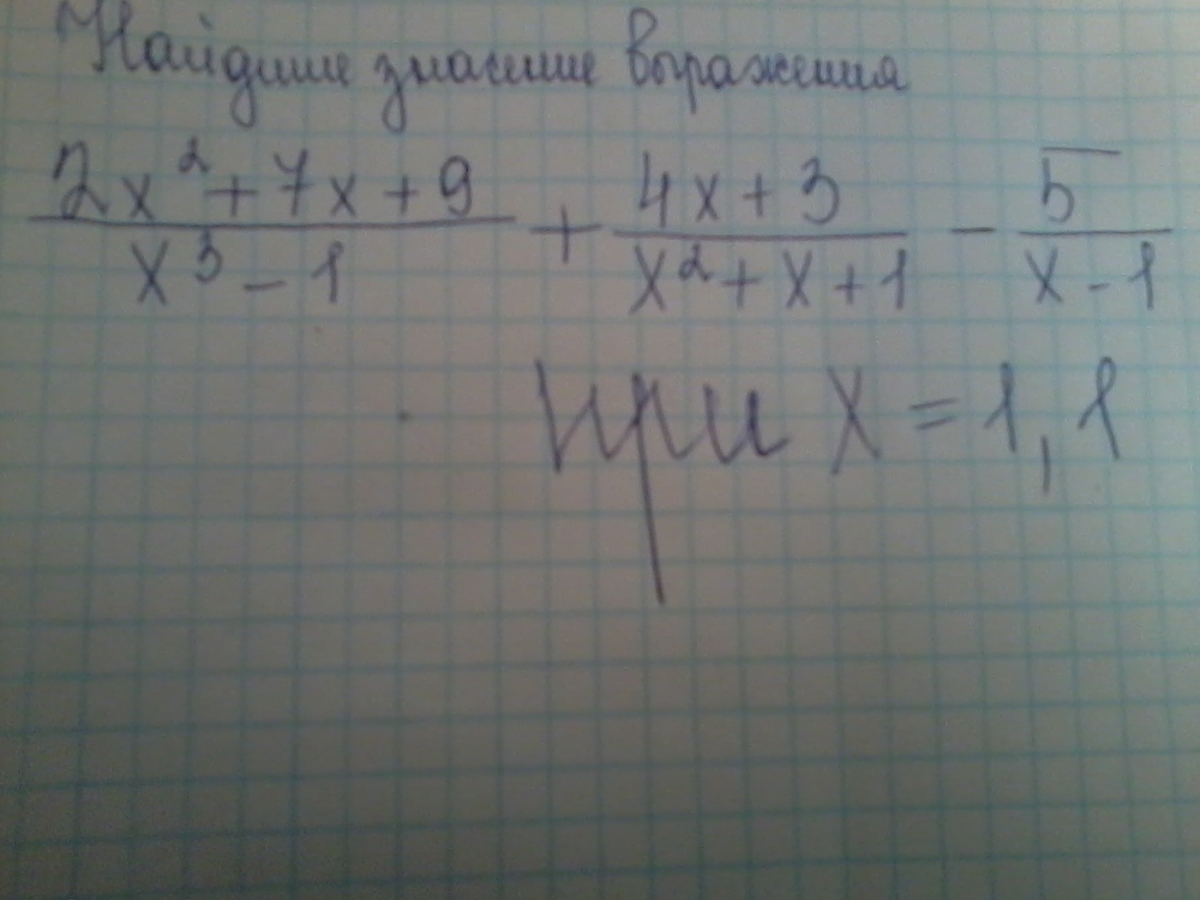 Найдите значение выражения
2x²+7x+9/x³-1 + 4x+3/x²+x+1 - 5/x-1
при x=1,1